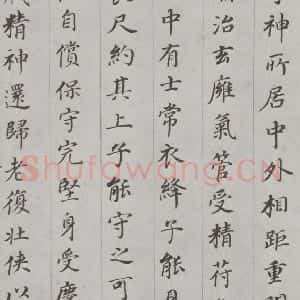 神所居中外相距重
治玄廱氣管受精苻
中有士常衣絳子能見
尺約其上子能守之可
自償保守完堅身受慶
精神還歸老復壯俠以
Shufawang.CN